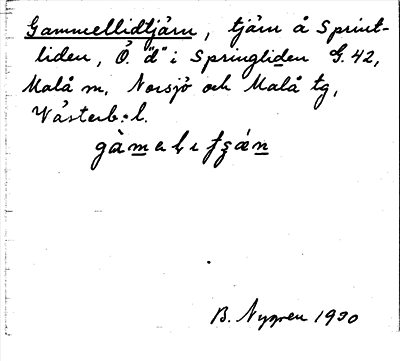 Gammellidtjärn, tjärn å Sprint-
liden, Ö. "d" i Springliden G. 42,
Malå m, Norsjö och Malå tg,
Västerb:s l.
gàmelıfʒǽn
B. Nygren 1930